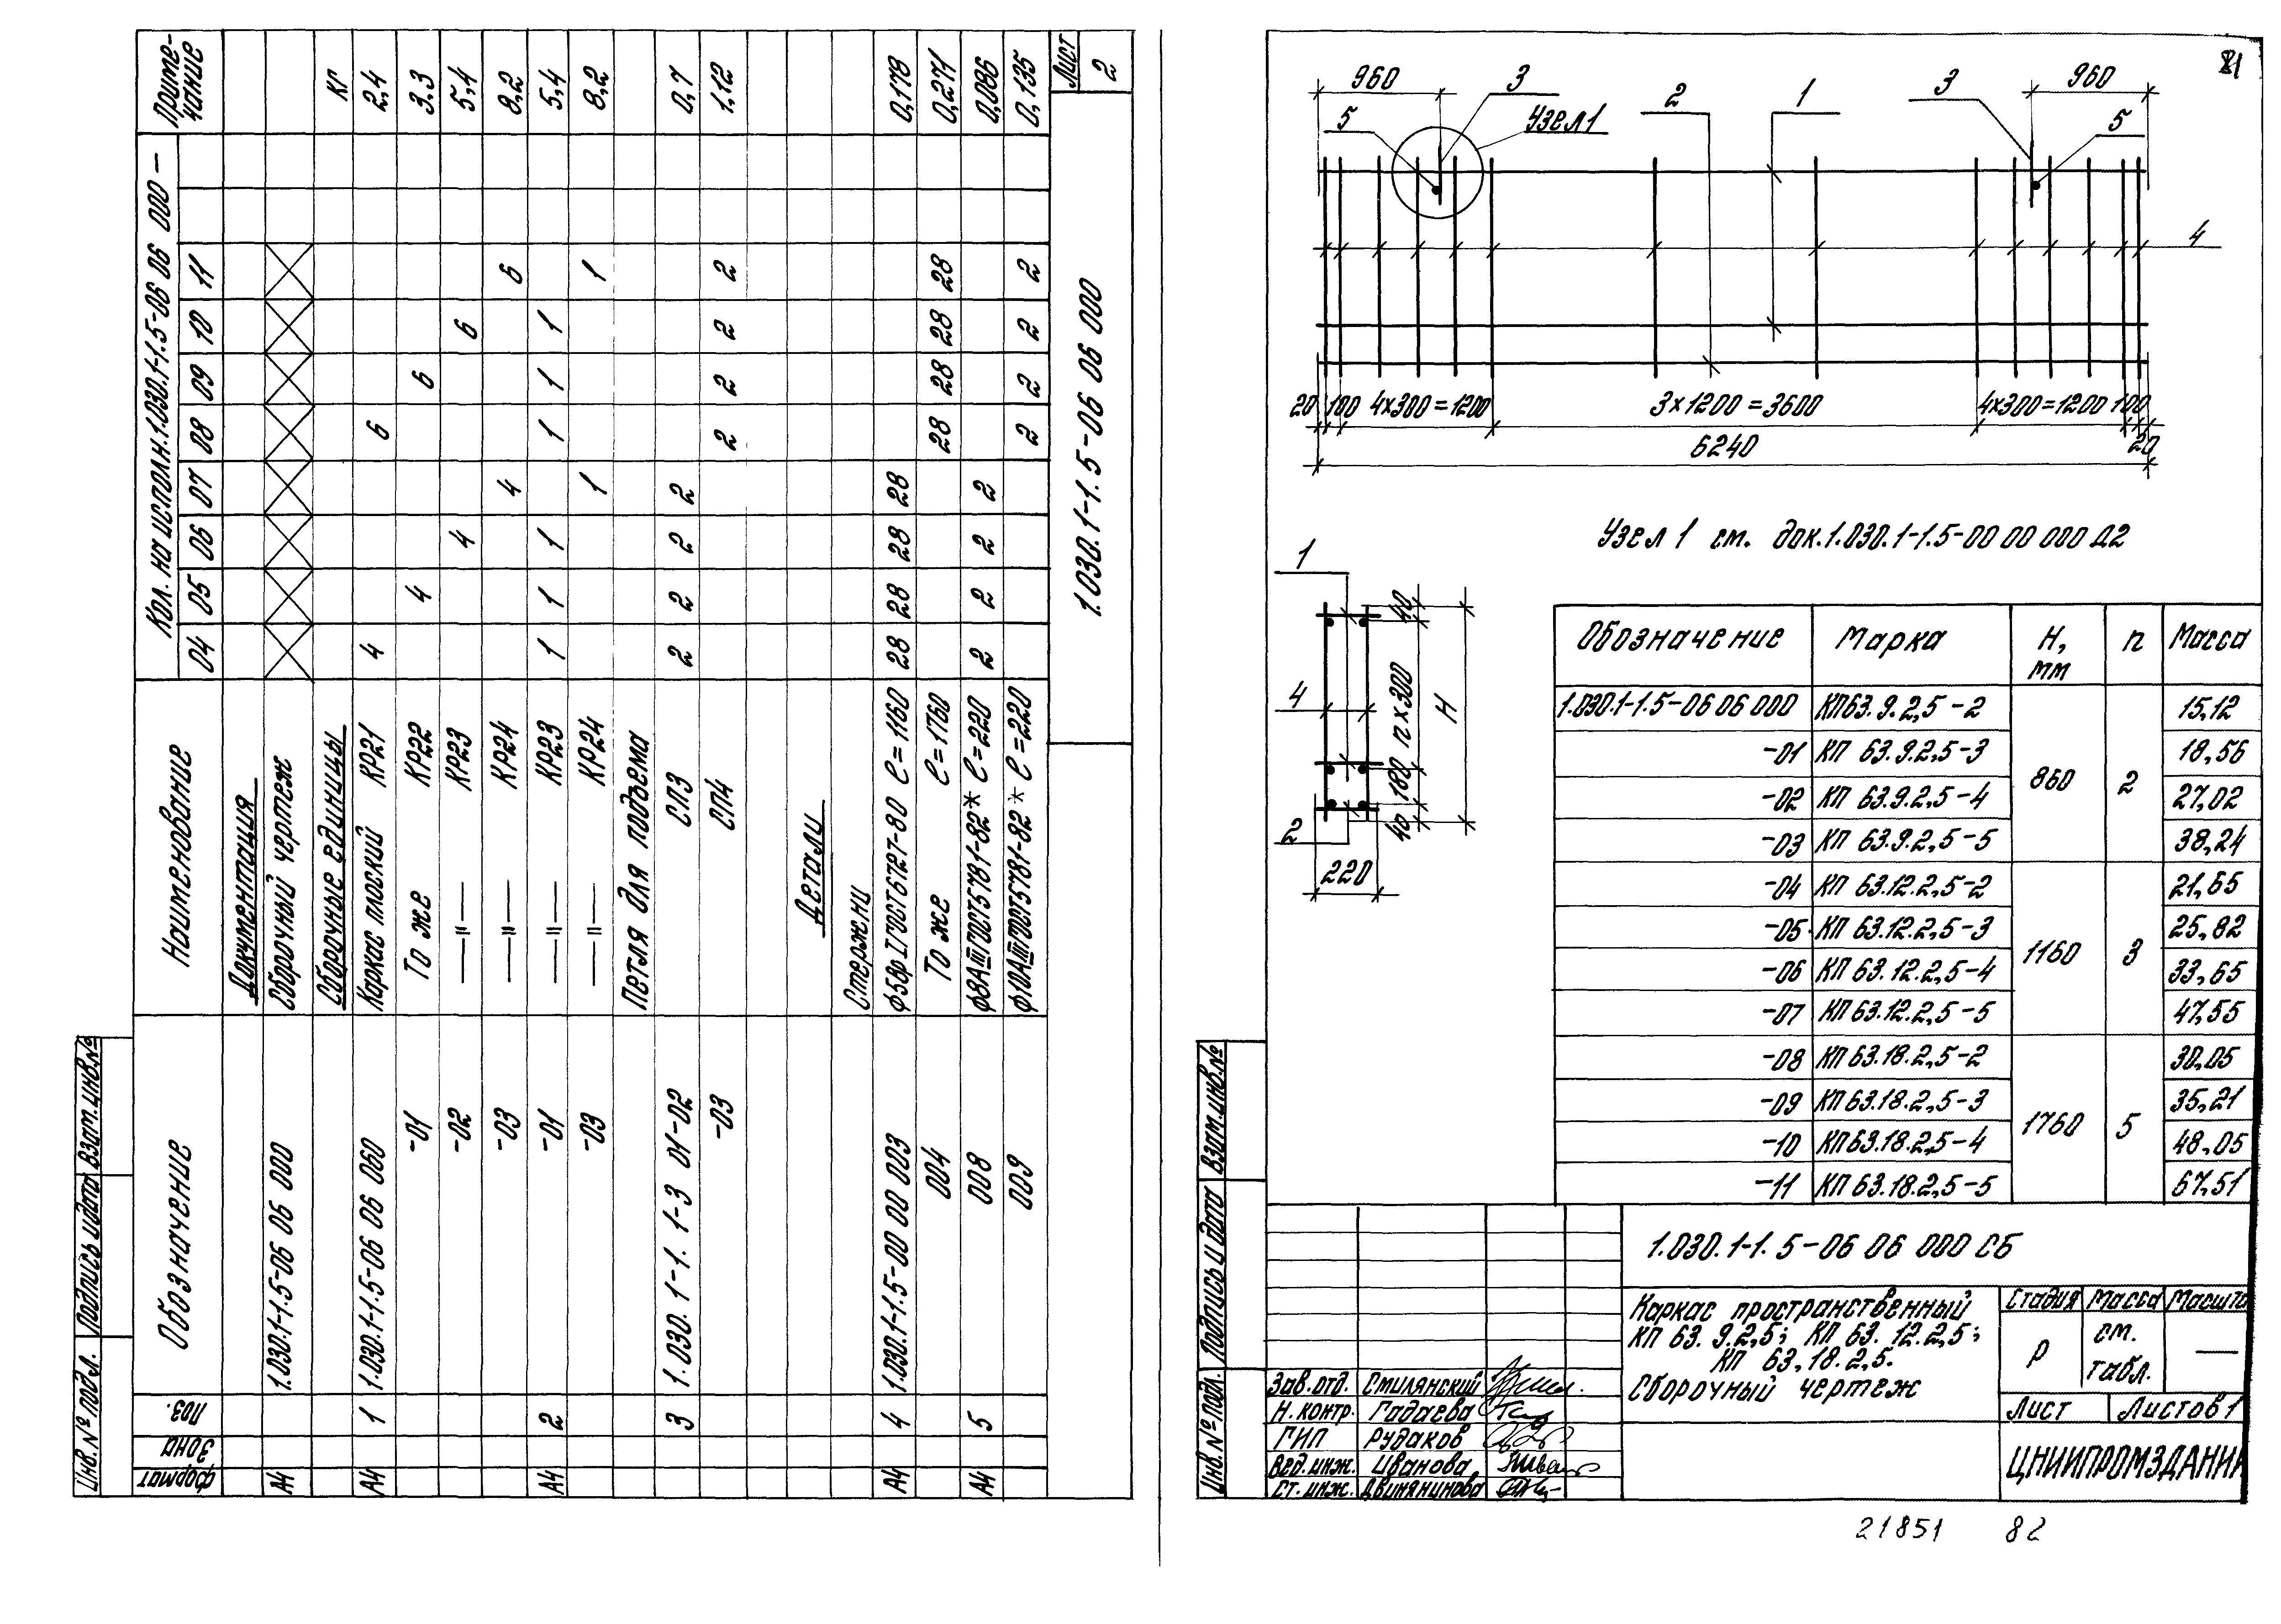 Формат Зона Поз. Обозначение Наименование Кол. на исполн. 1.030.1-1.5-06 06 000 — Приме-чание
04 05 06 07 08 09 10 11
Документация
А4 1.030.1-1.5-06 06 000 Сборочный чертеж
Сборочные единицы кг
А4 1 1.030.1-1.5-06 06 060 Каркас плоский КР21 4 6 2,4
-01 То же КР22 4 6 3.3
-02 —"— КР23 4 6 5,4
-03 —"— КР24 4 6 8,2
А4 2 -01 —"— КР23 1 1 1 1 1 1 5,4
-03 —"— КР24 1 1 8,2
Петля для подъема
3 1.030.1-1.1-3 01-02 СП3 2 2 2 2 0,7
-03 СП4 2 2 2 2 1,12
Детали
Стержни
А4 4 1.030.1-1.5-00 00 003 ф5ВрI ГОСТ6727-80 ℓ=1160 28 28 28 28 0,178
004 То же ℓ=1760 28 28 28 28 0,271
А4 5 008 ф8АIII ГОСТ5781-82* ℓ=220 2 2 2 2 0,086
009 ф10АIII ГОСТ5781-82* ℓ=220 2 2 2 2 0,135
1.030.1-1.5-06 06 000
Лист
2
Инв. № подл. Подпись и дата Взам.инв.№
81
960 3 2 1 3 960
5 Узел 1 5
4
20 100 4х300=1200 3х1200=3600 4х300=1200 100
20
6240
Узел 1 см. док.1.030.1-1.5-00 00 000 Д2
1
40
4 n х 300 H
180
2 40
220
Обозначение Марка Н, мм n Масса
1.030.1-1.5-06 06 000 КП63.9.2,5-2 860 2 15,12
-01 КП 63.9.2,5-3 18,56
-02 КП 63.9.2,5-4 27,02
-03 КП 63.9.2,5-5 38,24
-04 КП 63.12.2,5-2 1160 3 21,65
-05 КП 63.12.2,5-3 25,82
-06 КП 63.12.2,5-4 33,65
-07 КП 63.12.2,5-5 47,55
-08 КП 63.18.2,5-2 1760 5 30,05
-09 КП 63.18.2,5-3 35,21
-10 КП 63.18.2,5-4 48,05
-11 КП 63.18.2,5-5 67,51
1.030.1-1.5-06 06 000 СБ
Каркас пространственный
КП 63.9.2,5; КП 63.12.2,5;
КП 63,18.2,5.
Сборочный чертеж
Стадия Масса Масшта
Р см. табл. —
Лист Листов 1
ЦНИИПРОМЗДАНИЙ
Зав.отд. Смилянский
Н.контр. Гадаева
ГИП Рудаков
Вед.инж. Иванова
Ст.инж. Двинянинова
Инв. № подл. Подпись и дата Взам.инв.№
21851 82